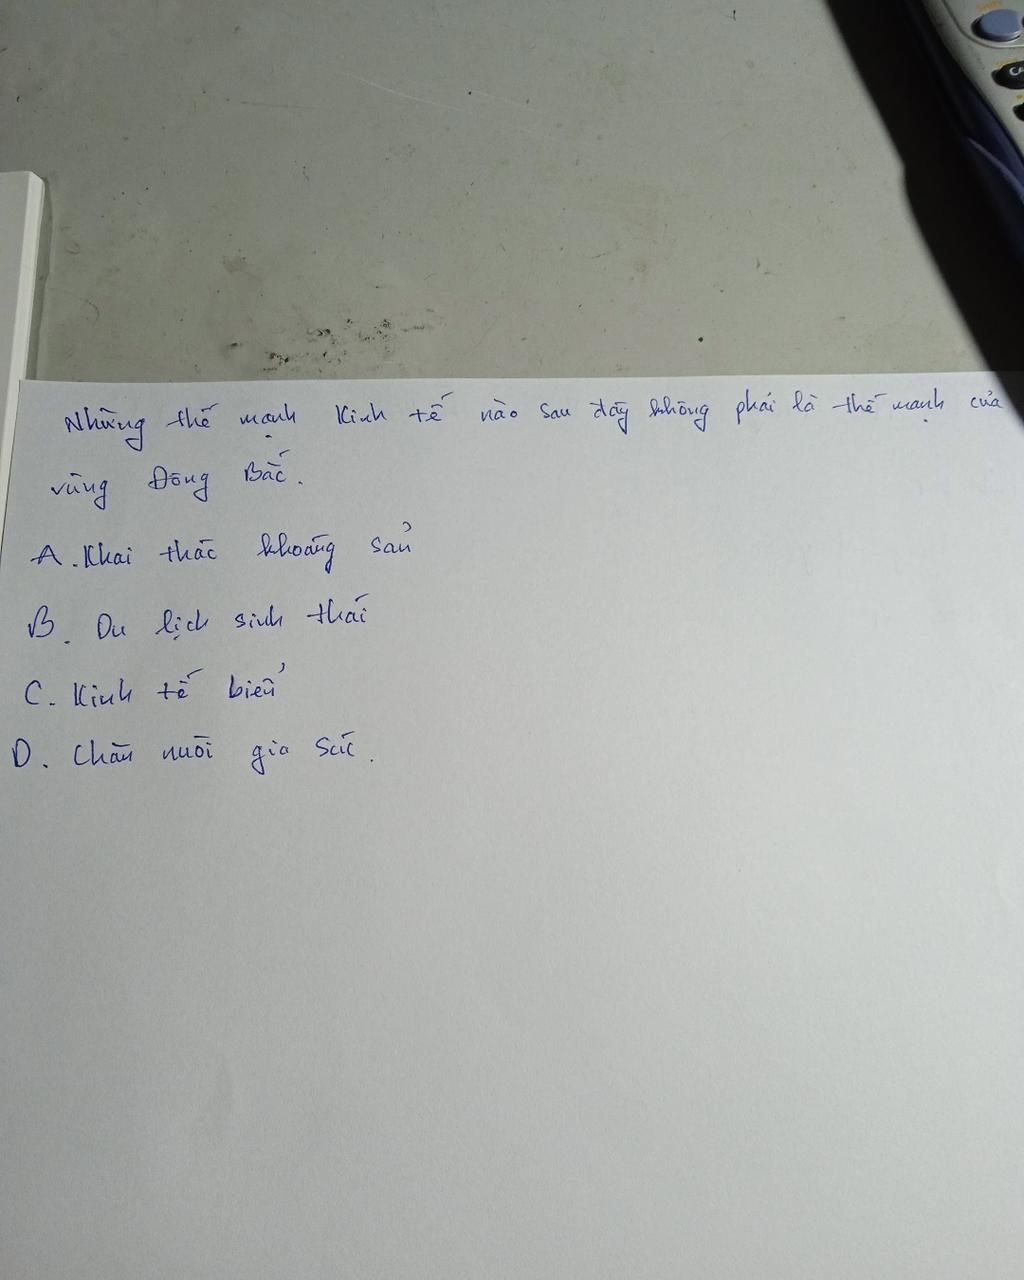 Những thế mạnh kinh tế nào sau đây không phải là thế mạnh của
vùng Đông Bắc.
A. Khai thác khoáng sản
B. Du lịch sinh thái
C. Kinh tế biển
D. Chăn nuôi gia súc.